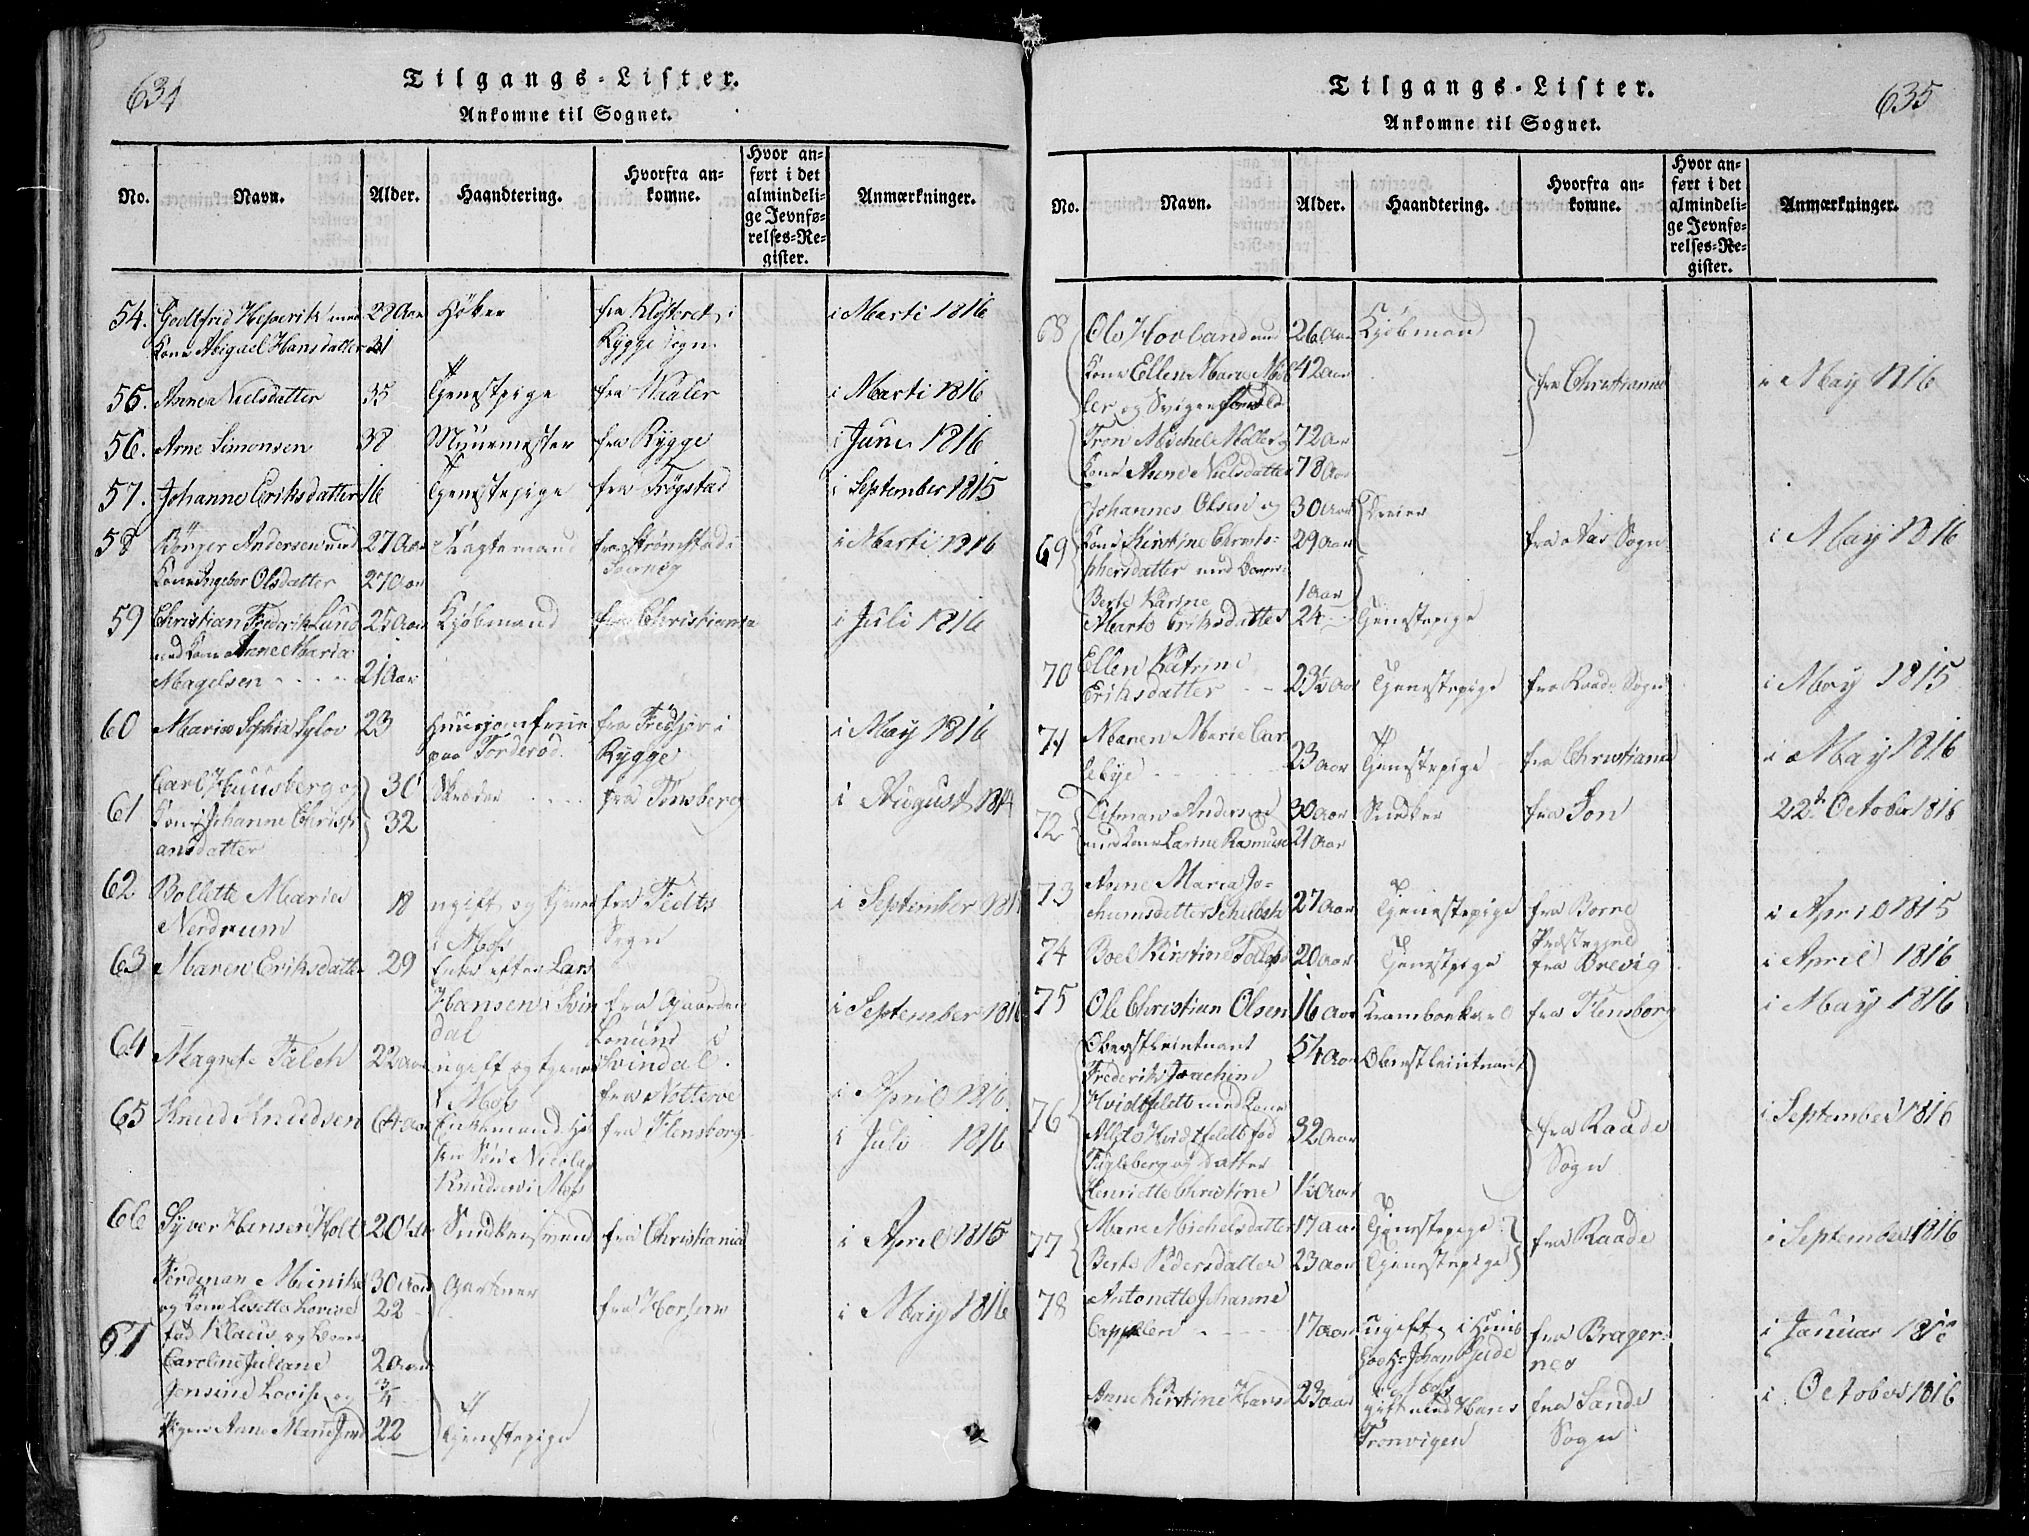 634
Tilgangs-Lister.
Ankomne til Sognet.
No. Navn. Alder. Haandtering. Hvorfra ankomne. Hvor anført i det almindelige Jevnførelses-Register. Anmærkninger.
54. Godtfred Heserik med 29 Aar Höker fra Klosteret i i Marti 1816
Kone Abigael Hansdatter 31 Rygge Sogn
55. Anne Nielsdatter 35 Tjenestepige fra Waaler i Marti 1816
56. Arne Simonsen 38 Muurmester fra Rygge i Juni 1816
57. Johanne Eriksdatter 16 Tjenestepige fra Trögstad i September 1815
58 Börger Andersen med 27 Aar Slagtermand fra Strömstad i i Marti 1816
Kone Ingebor Olsdatter 27 Aar Sverrig
59 Christian Frederik Lund 25 Aar Kjöbmand fra Christiania i Juli 1816
med Kone Anne Maria
Magelsen - - - - 21 Aar
60 Maria Sophia Sylov 23 Huusjomfrue fra Fredsjor i i May 1816
paa Torderod. Rygge
Carl Huusberg og 30 Skræder fra Tönsberg i August 1814
61 Kone Johanne Christi 32
ansdatter
62 Bollette Maria 18 ugift og tjener fra Tidts i September 181
Nerdrum i Moss Sogn
63 Maren Eriksdatter 29 Enke efter Lars
Hansen i Svin fra Gaarden i September 1816
dal
64 Magrete Falch 22 Aar ugift og tjener Svindal.
i Moss fra Notteröe i April 1816
65 Knud Knudsen 64 Aar Enkemand hos fra Flensborg i Juli 1816
sin Sön Nicolay
Knudsen i Moss
66 Syver Hansen Holt 20 Snedkersvend fra Christiania i April 1815
Ferdinan Meinike 30 Aar Gartner
og Kone Lisette Lovise 22 fra Horsens i May 1816
67 föd Klaeis og
Caroline Juliane 2 Aar
Jensine Lovise og 3/4
Pigen Anne Marie 22 Tjenestepige
635
Tilgangs-Lister.
Ankomne til Sognet.
No. Navn. Alder. Haandtering. Hvorfra ankomne. Hvor anført i det almindelige Jevnførelses-Register. Anmærkninger.
68 Ole Hovland med 26 Aar Kjöbmand
Kone Ellen Marie Möl 42 Aar fra Christiania i May 1816
ler og Svigerforæld
Tron Michel Möller og 72 Aar
Kone Anne Nielsdatter 78 Aar
Johannes Olsen og 30 Aar Dreier
69 Kone Kirstine Christo- 29 Aar fra Aas Sogn i May 1816
phersdatter med
Berte Karine 1 Aar
Marte Eriksdatter 24 - Tjenestepige
70 Ellen Katrine
Eriksdatter - - 23½ Aar Tjenestepige fra Raade Sogn i May 1815
71 Maren Marie Car
lebye 23 Aar Tjenestepige fra Christiania i May 1816
72 Ditman Andersen 30 Aar Snedker fra Son 22de October 1816
med Kone Larine Rasmusd 21 Aar
73 Anne Maria Jo-
chumsdatter Schelbek 27 Aar Tjenestepige fra Borre i April 1815
Præstegjeld
74 Boel Kirstine Tellefsd 20 Aar Tjenestepige fra Brevig i April 1816
75 Ole Christian Olsen 16 Aar Kramboekarl fra Flensborg i May 1816
Oberstleiutnant 54 Aar Oberstleiutnant
Frederik Joachim
76 Hvidtfeldt med Kone i September 1816
Alda Hvidtfeldt föd 32 Aar fra Raade
Fugleberg og Datter Sogn
Henriette Christine 1½ Aar
77 Maren Michelsdatter 17 Aar Tjenestepige fra Raade i September 1816
Berte Pedersdatter 23 Aar Tjenestepige
78 Antonette Johanne
Cappelen - - - - 17 Aar ugift, i Huus fra Brager- i Januar 1816
hos Hr Johan Gjede nes
Anne Kirstine Hansd 23 Aar gift med Hans fra Sande i October 1816
Tronvigen Sogn